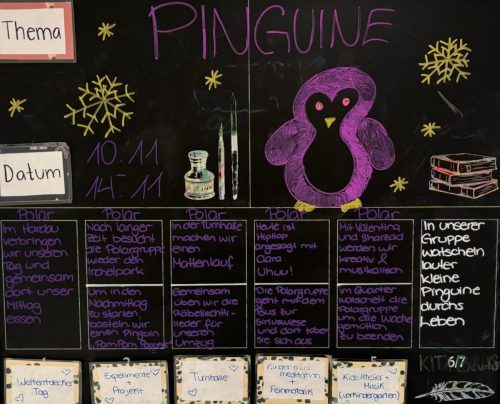 Thema
PINGUINE
Datum
10.11
14.11
Polar
Im Hardau
verbringen
wir unseren
Tag und
gemeinsam
dort unser
Mittag
essen
Polar
Nach langer
Zeit besucht
die Polargruppe
wieder den
Irchelpark
Um in den
Nachmittag
zu starten,
basteln wir
einen Pinguin
Pom Pom
Polar
In der Turnhalle
machen wir
einen
Mattenlauf
Gemeinsam
üben wir die
Räbeliechtli-
lieder für
unseren
Umzug
Polar
Heute ist
HipHop
angesagt mit
Clara.
Uhuu!
Die Polargruppe
geht mit dem
Bus zur
Siriuswiese
und dort toben
sie sich aus
Polar
Mit Valentina
und
werden wir
kreativ &
musikalisch
Im Quartier
watschelt die
Polargruppe
um die Woche
gemütlich
zu beenden
In unserer
Gruppe
watscheln
lauter
kleine
Pinguine
durchs
Leben
KITA
6/7
Weltentdecker
Tag
Experimente
+
Projekt
Turnhalle
Kinder mini
meditation
+
Feinmotorik
Kids Atelier +
Musik
(vorkindergarten)